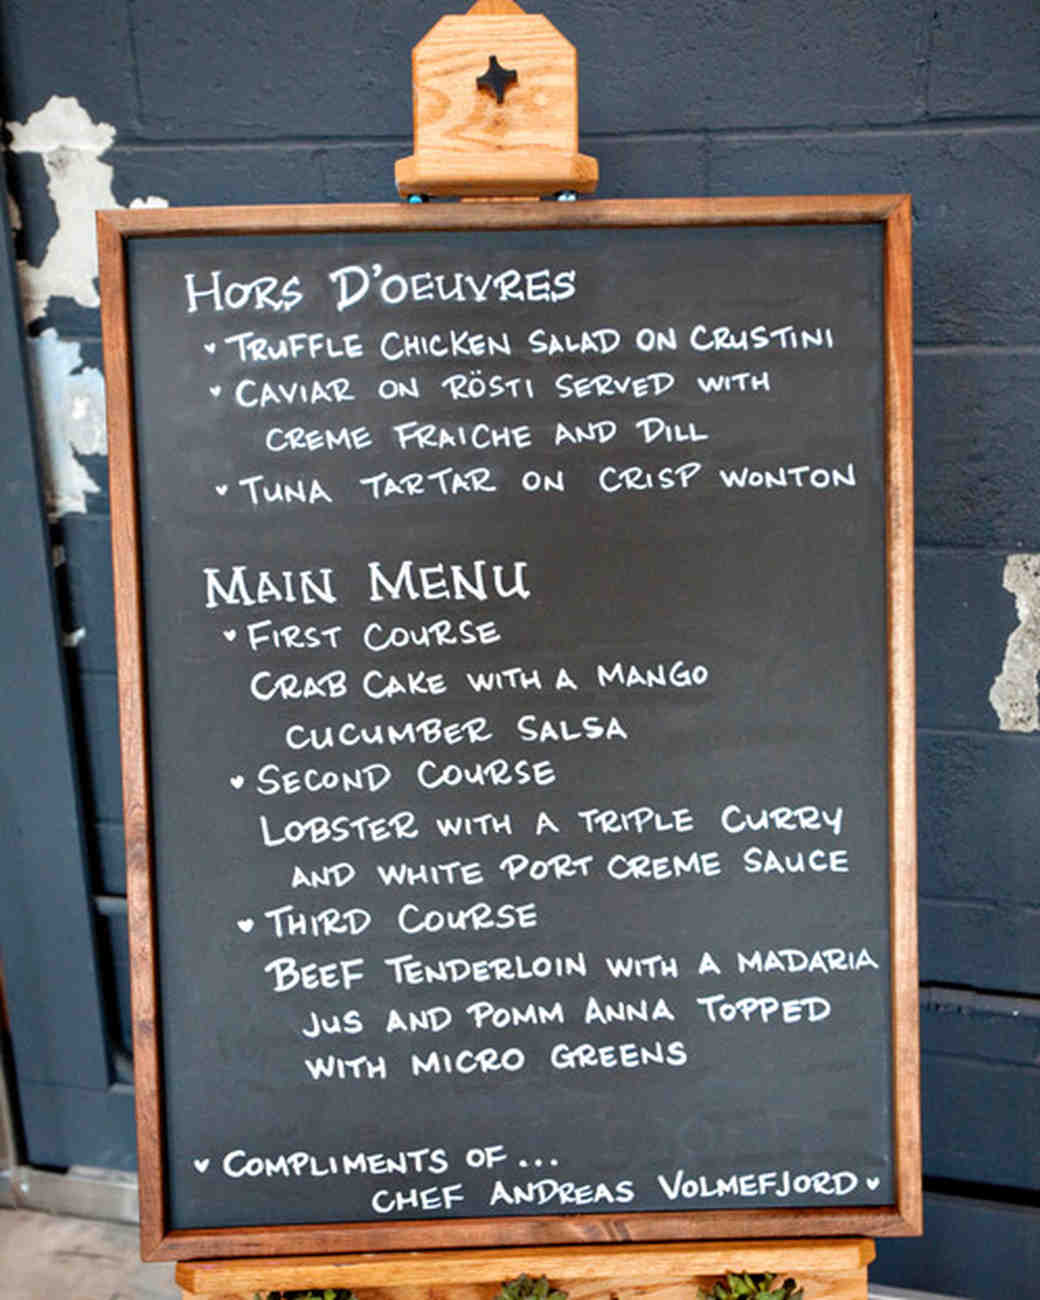 HORS D'OEUVRES
TRUFFLE CHICKEN SALAD ON CRUSTINI
CAVIAR ON RÖSTI SERVED WITH
CREME FRAICHE AND DILL
TUNA TARTAR ON CRISP WONTON
MAIN MENU
FIRST COURSE
CRAB CAKE WITH A MANGO
CUCUMBER SALSA
SECOND COURSE
LOBSTER WITH A TRIPLE CURRY
AND WHITE PORT CREME SAUCE
THIRD COURSE
BEEF TENDERLOIN WITH A MADARIA
JUS AND POMM ANNA TOPPED
WITH MICRO GREENS
COMPLIMENTS OF...
CHEF ANDREAS VOLMEFJORD